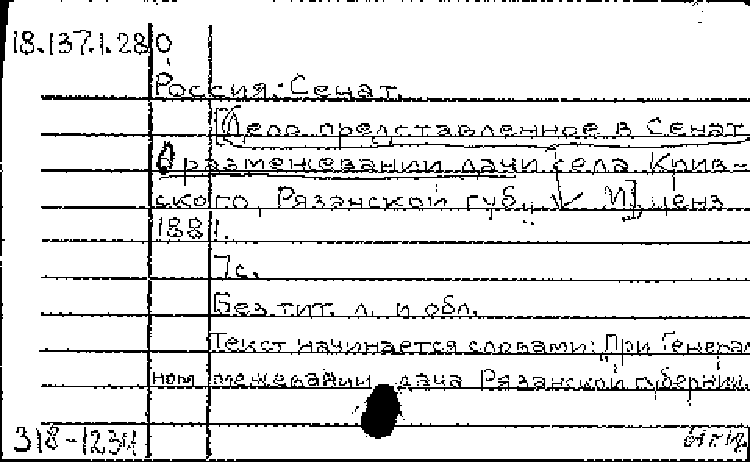 18.137.1.280
Россия. Сенат.
[Дело представленное в Сенат
О размежевании дачи села Крив-
ского, Рязанской губ., ценз
1881.
7с.
Без тит. л. и обл.
Текст начинается словами: "При Генераль
ном межевании дача Рязанской губернии
318-1234